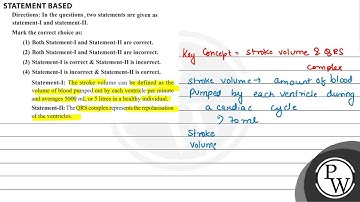 STATEMENT BASED
Directions: In the questions, two statements are given as
statement-I and statement-II.
Mark the correct choice as:
(1) Both Statement-I and Statement-II are correct.
(2) Both Statement-I and Statement-II are incorrect.
(3) Statement-I is correct & Statement-II is incorrect.
(4) Statement-I is incorrect & Statement-II is correct.
Statement-I: The stroke volume can be defined as the
volume of blood pumped out by each ventricle per minute
and averages 5000 mL or 5 litres in a healthy individual.
Statement-II: The QRS complex represents the repolarisation
of the ventricles.
Key Concept = stroke volume & QRS
complex
stroke volume → amount of blood
pumped by each ventricle during
a cardiac cycle
→ 70 ml
Stroke
volume
PW